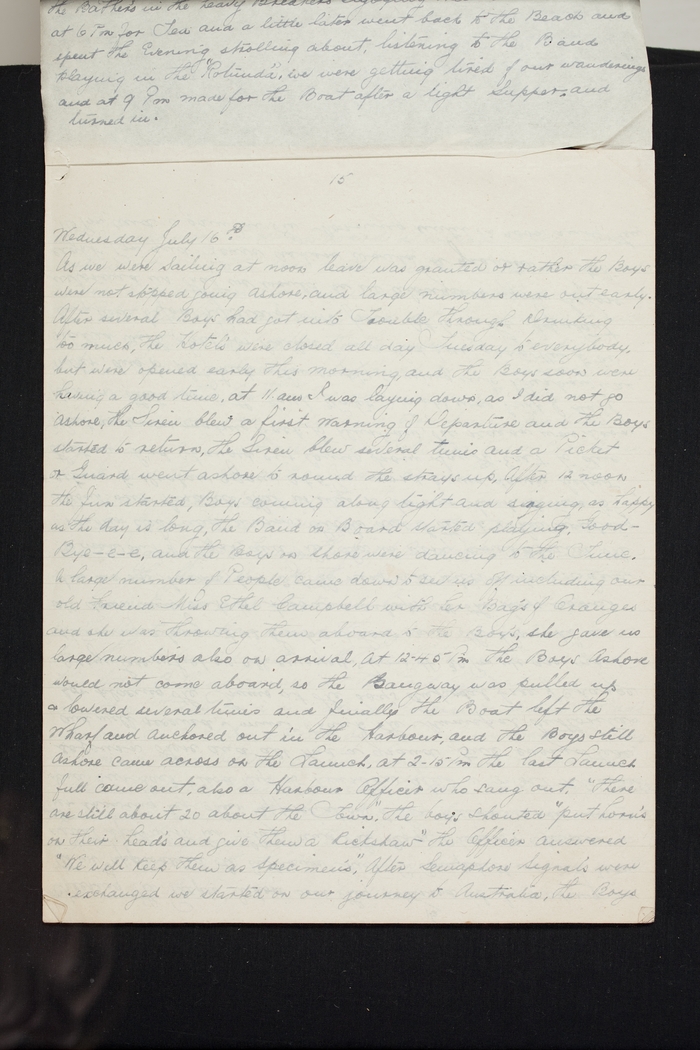 the Bathers in the heavy Breakers enjoying
at 6 Pm for Tea and a little later went back to the Beach and
spent the Evening strolling about, listening to the Band
playing in the "Rotunda", we were getting tired of our wanderings
and at 9 Pm made for the Boat after a light Supper, and
turned in.
15
Wednesday July 16th
As we were sailing at noon leave was granted or rather the Boys
were not stopped going ashore, and large numbers were out early.
After several Boys had got into Trouble through Drinking
too much, the hotels were closed all day Tuesday to everybody,
but were opened early this morning, and the Boys soon were
having a good time, at 11 am I was laying down, as I did not go
ashore, the Siren blew a first warning of Departure and the Boys
started to return, the Siren blew several times and a Picket
or Guard went ashore to round the strays up, After 12 noon
the fun started, Boys coming along tight and singing, as happy
as the day is long, the Band on Board started playing, Good-
Bye-e-e, and the Boys on shore were dancing to the Tune.
A large number of People came down to see us off including our
old friend Miss Ethel Campbell with her Bags of Oranges
and she was throwing them aboard to the Boys, she gave us
large numbers also on arrival, At 12-45 Pm the Boys Ashore
would not come aboard, so the Gangway was pulled up
& lowered several times and finially the Boat left the
Wharf and anchored out in the Harbour, and the Boys still
Ashore came across on the Launch, at 2-15 Pm the last Launch
full came out, also a Harbour Officer who sang out, "There
are still about 20 about the Town", the boys shouted "put horn's
on their head's and give them a Rickshaw" the Officer answered
"We will keep them as Specimen's", After Semaphore signals were
exchanged we started on our journey to Australia, the Boys